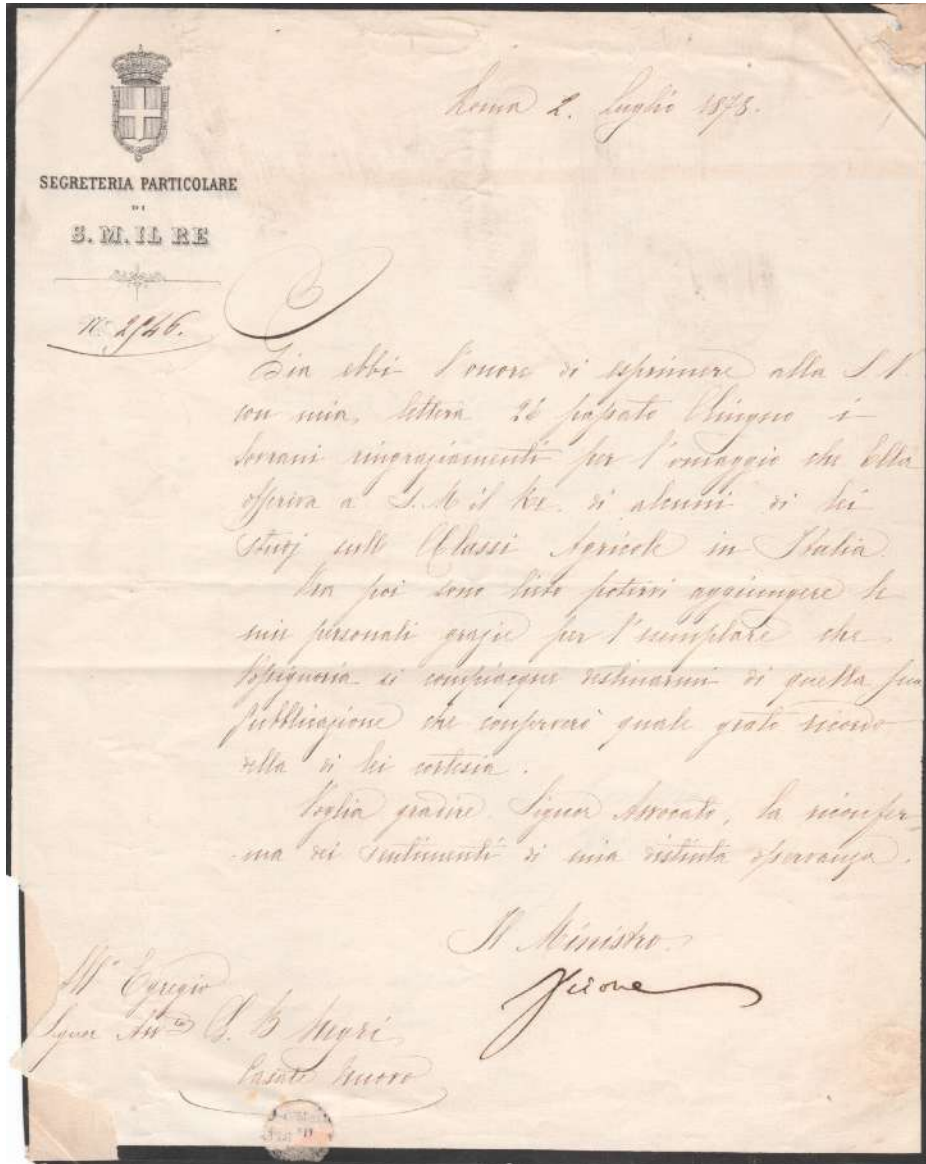 Roma 2. Luglio 1878.
SEGRETERIA PARTICOLARE
DI
S. M. IL RE
N. 2546.
Già ebbi l'onore di esprimere alla S. V.
con mia lettera 26 passato Giugno i
Sovrani ringraziamenti per l'omaggio che Ella
offeriva a S. M. il Re. di alcuni di lei
studj sulle Classi Agricole in Italia.
Ora poi sono lieto potervi aggiungere le
mie personali grazie per l'esemplare che
si compiacque destinarmi di quella sua
pubblicazione che conserverò quale grato ricordo
della di lei cortesia.
Voglia gradire, Signor Avvocato, la riconfer-
ma dei sentimenti di mia distinta osservanza.
Il Ministro
All' Egregio
Signor Avv.to G. B. Negri
Casale